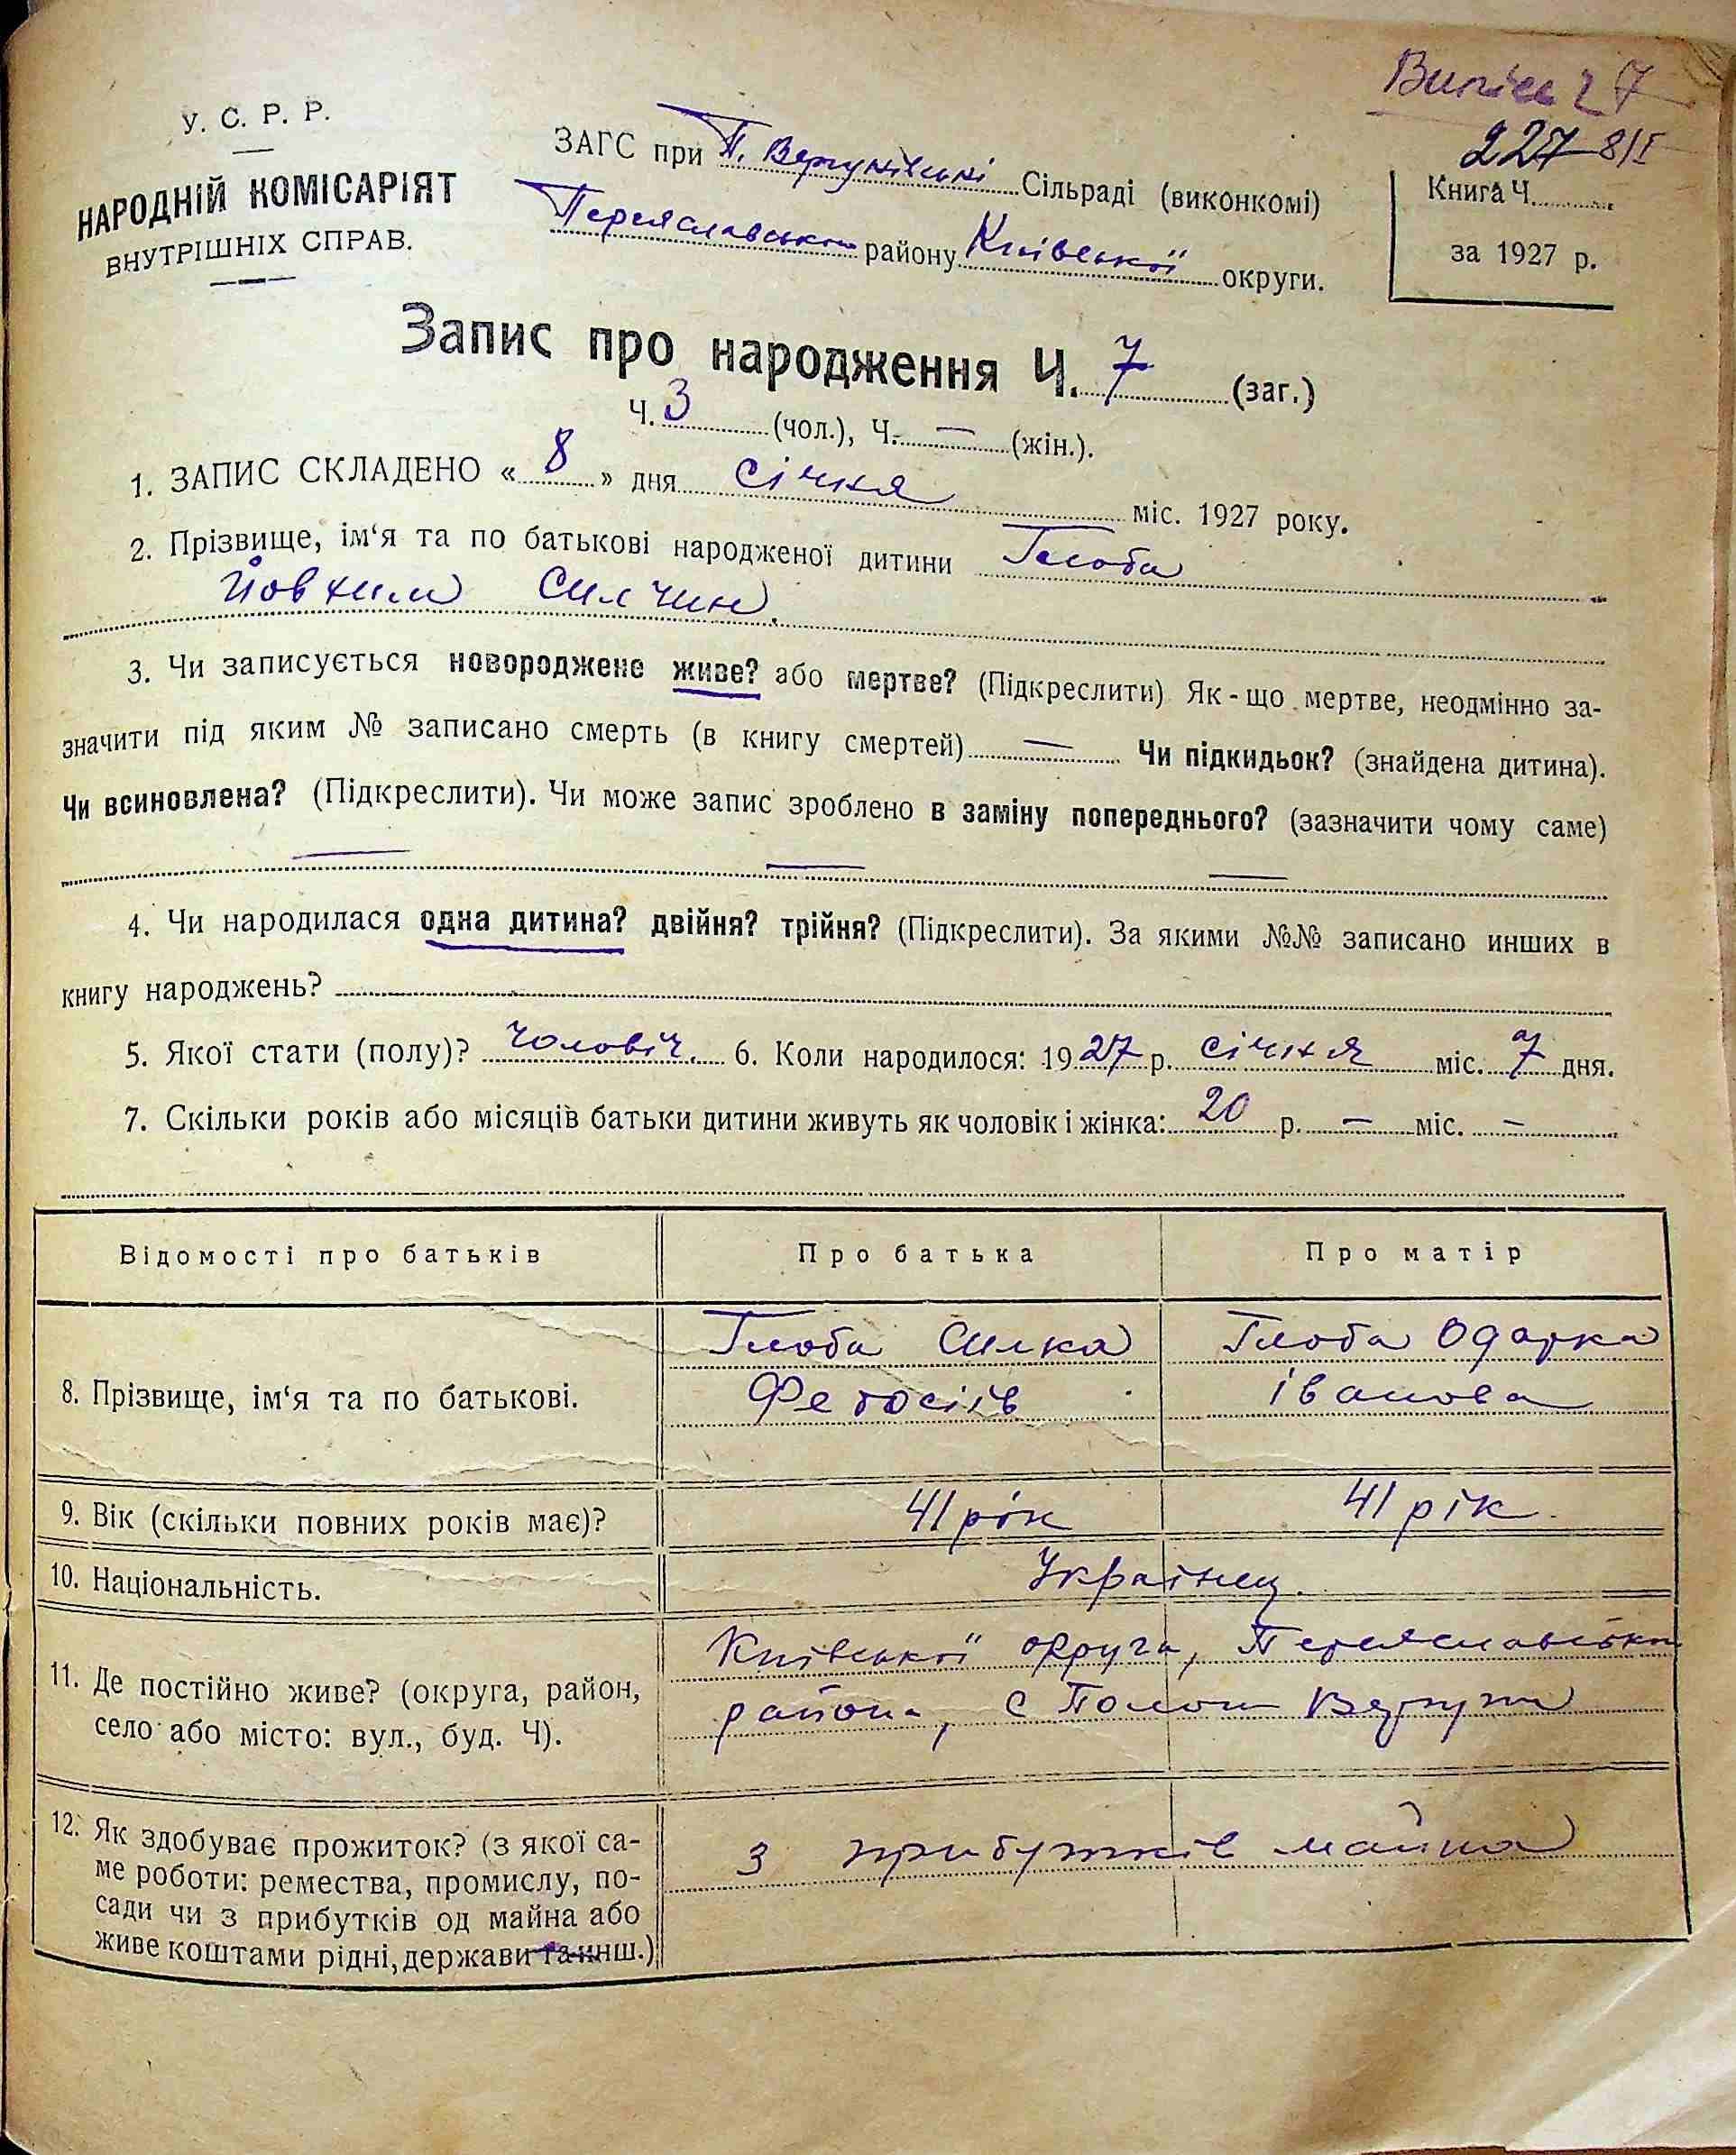 Випис 27
227 8/I
У. С. Р. Р.
НАРОДНІЙ КОМІСАРІЯТ
ВНУТРІШНІХ СПРАВ.
ЗАГС при П. Вергунівські Сільраді (виконкомі)
Переяславськ району Київської округи.
Книга Ч.
за 1927 р.
Запис про народження Ч. 7 (заг.)
Ч. 3 (чол.), Ч. — (жін.).
1. ЗАПИС СКЛАДЕНО « 8 » дня січня міс. 1927 року.
2. Прізвище, ім‘я та по батькові народженої дитини Глоба
Йовхим Силчин.
3. Чи записується новороджене живе? або мертве? (Підкреслити) Як - що мертве, неодмінно за-
значити під яким № записано смерть (в книгу смертей) — Чи підкидьок? (знайдена дитина).
Чи всиновлена? (Підкреслити). Чи може запис зроблено в заміну попереднього? (зазначити чому саме)
— — —
4. Чи народилася одна дитина? двійня? трійня? (Підкреслити). За якими №№ записано инших в
книгу народжень?
5. Якої стати (полу)? чоловіч. 6. Коли народилося: 1927 р. січня міс. 7 дня.
7. Скільки років або місяців батьки дитини живуть як чоловік і жінка: 20 р. — міс. —
Відомості про батьків Про батька Про матір
8. Прізвище, ім‘я та по батькові.
Глоба Силка Глоба Одарка
Федосіїв Іванова
9. Вік (скільки повних років має)? 41 рік 41 рік.
10. Національність. Українец.
11. Де постійно живе? (округа, район,
село або місто: вул., буд. Ч).
Київської округа, Переяславськ
района, с Полог Вергун
12. Як здобуває прожиток? (з якої са-
ме роботи: ремества, промислу, по-
сади чи з прибутків од майна або
живе коштами рідні, держави та инш.)
з прибутків майна